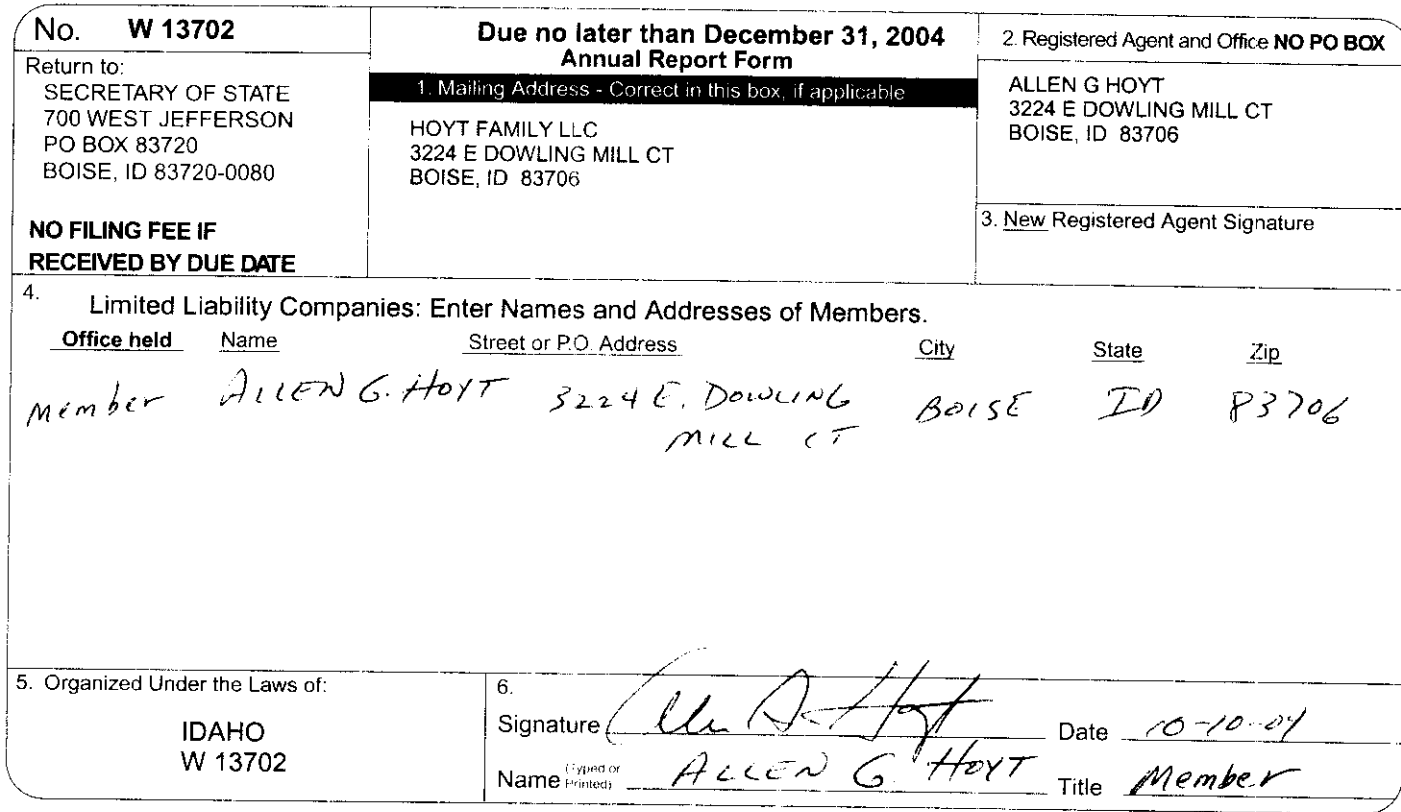 No. W 13702
Return to:
SECRETARY OF STATE
700 WEST JEFFERSON
PO BOX 83720
BOISE, ID 83720-0080
NO FILING FEE IF
RECEIVED BY DUE DATE
Due no later than December 31, 2004
Annual Report Form
1. Mailing Address - Correct in this box, if applicable
HOYT FAMILY LLC
3224 E DOWLING MILL CT
BOISE, ID 83706
2. Registered Agent and Office NO PO BOX
ALLEN G HOYT
3224 E DOWLING MILL CT
BOISE, ID 83706
3. New Registered Agent Signature
4. Limited Liability Companies: Enter Names and Addresses of Members.
Office held Name Street or P.O. Address City State Zip
Member ALLEN G. HOYT 3224 E. DOWLING BOISE ID 83706
MILL CT
5. Organized Under the Laws of:
IDAHO
W 13702
6.
Signature Allen G Hoyt Date 10-10-04
Name (Typed or Printed) ALLEN G HOYT Title Member